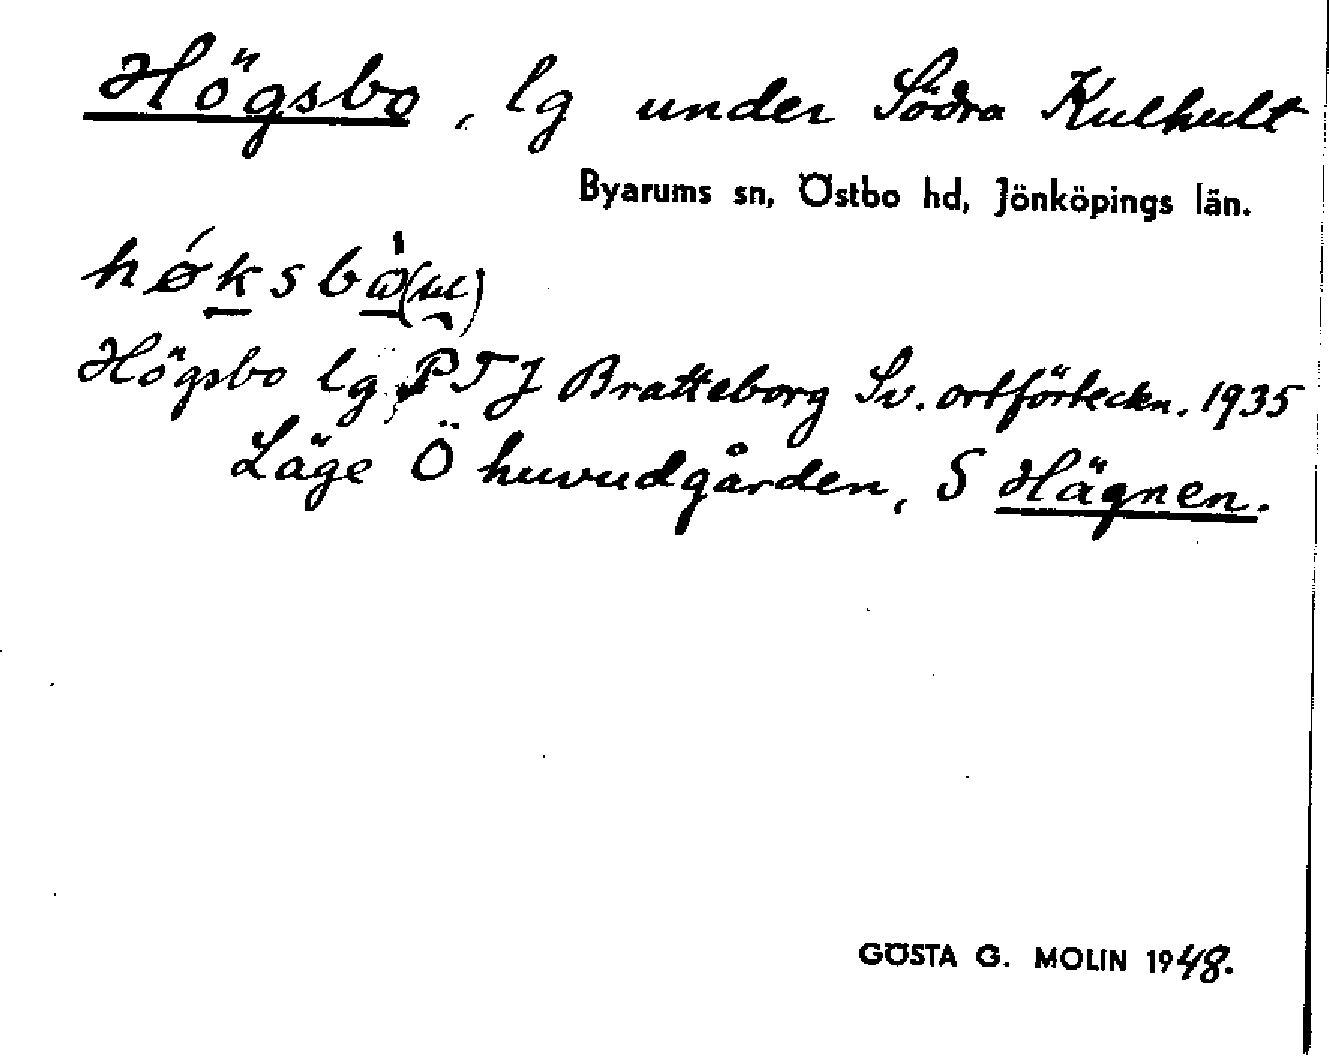 Högsbo, lg under Södra Kulhult
Byarums sn, Östbo hd, Jönköpings län.
Högsbo lg PTJ Bratteborg Sv. ortförteckn. 1935
Läge Ö huvudgården, S Hägnen.
GÖSTA G. MOLIN 1948.